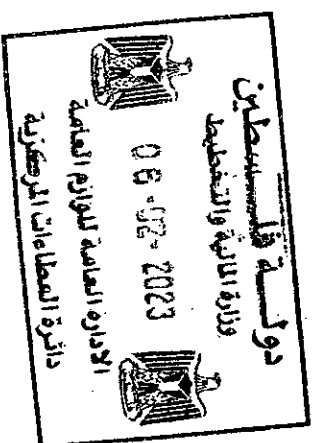 دولة فلسطين
وزارة المالية والتخطيط
06-02-2023
الادارة العامة للوازم العامة
دائرة العطاءات المركزية